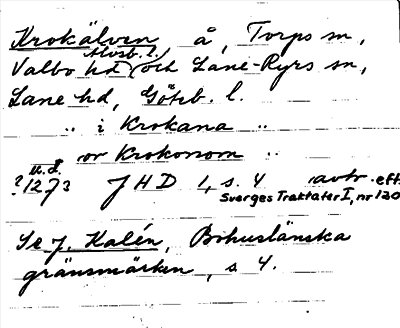 Krokälven å, Torps sn,
Älvsb. l.
Valbo hd och Lane-Ryrs sn,
Lane hd, Göteb. l.
" i Krokana "
or Krokorom "
u. d.
? 1273 JHD 1, s. 4 avtr. eft.
Sverges Traktater I, nr 120
Se J. Kalén, Bohuslänska
gränsmärken, s 4.